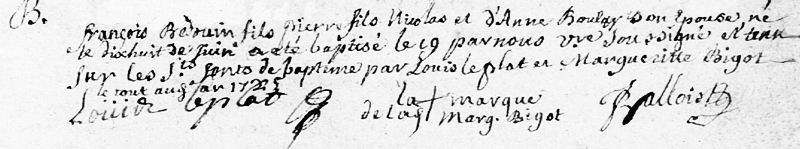 B.
François Bedouin fils Pierre fils Nicolas et d'Anne Boulay Son Epouse, né
le dixhuit de Juin a eté baptisé le 19 par nous vre Soussigné et tenu
Sur les Sts fonts de baptime par Louis le plat et Margueritte Bigot
le tout aud. an 1725
Louis le plat la + marque
de lad. Marg. Bigot